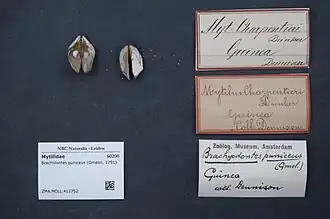 Myt. Charpentieri
Dunker
Guinea
Dennison
Mytilus Charpentieri
Dunker
Guinea
Coll. Dennison
NBC Naturalis - Leiden
Mytilidae 60200
Brachidontes puniceus (Gmelin, 1791)
ZMA.MOLL.413752
Zoölog. Museum, Amsterdam
Brachyodontes puniceus
(Gmel.)
Guinea
coll. Dennison